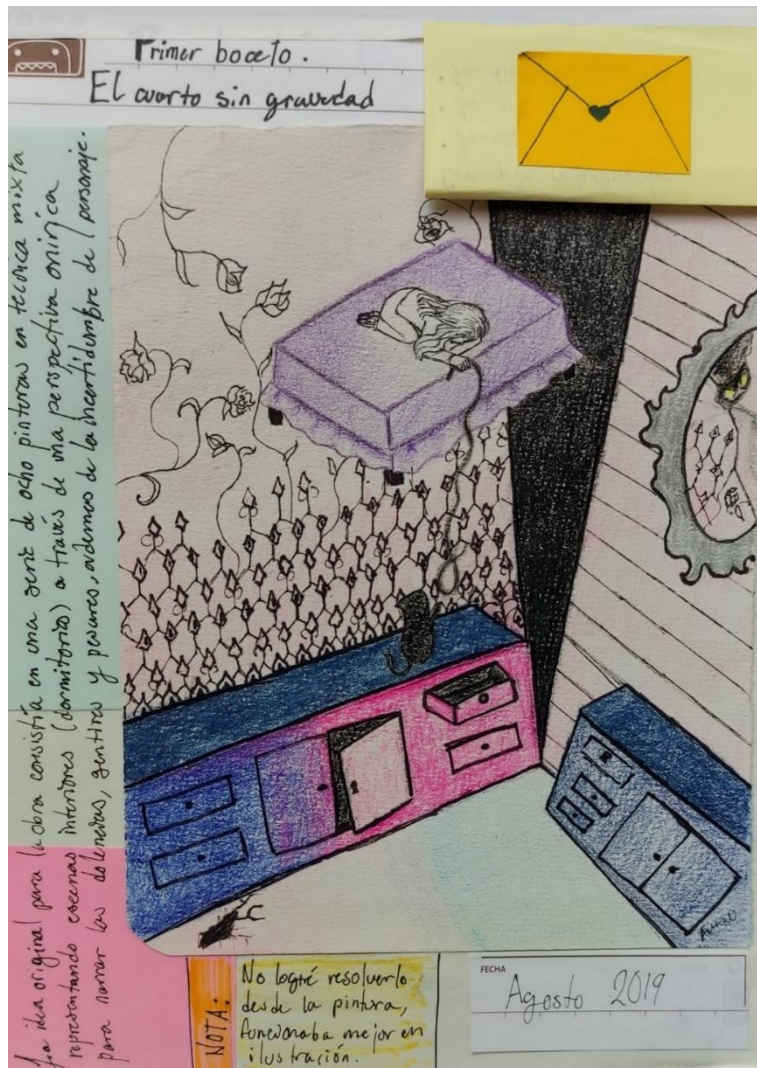 Primer boceto.
El cuarto sin gravedad
La idea original para la obra consistía en una serie de ocho pinturas en técnica mixta
representando escenas interiores (dormitorios) a través de una perspectiva onírica
para narrar las dolencias, sentires y pesares, además de la incertidumbre del personaje.
NOTA:
No logré resolverlo
desde la pintura,
funcionaba mejor en
ilustración.
FECHA
Agosto 2019